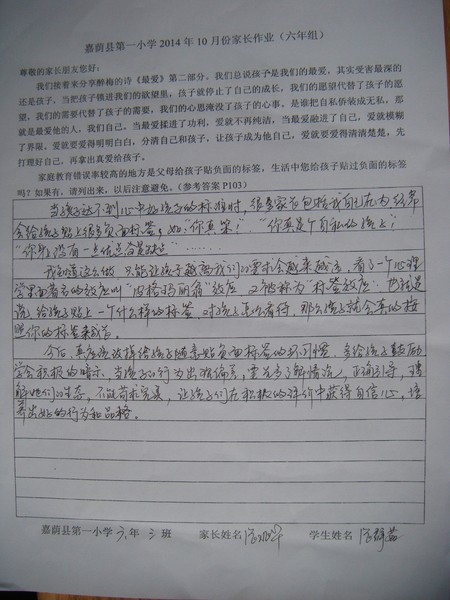 嘉荫县第一小学 2014 年 10 月份家长作业（六年组）
尊敬的家长朋友您好：
我们接着来分享醉梅的诗《最爱》第二部分。我们总说孩子是我们的最爱，其实受害最深的
还是孩子，当把孩子锁进我们的欲望里，孩子就停止了自己的成长，我们的愿望代替了孩子的愿
望，我们的需要代替了孩子的需要，我们的心思淹没了孩子的心事，是谁把自私伪装成无私，那
就是最爱他的人，我们自己，当最爱揉进了功利，爱就不再纯洁，当最爱融进了自己，爱就模糊
了界限，爱就要爱得明明白白，分清自己和孩子，让孩子成为他自己，爱就要爱得清清楚楚，先
打理好自己，再拿出真爱给孩子。
家庭教育错误率较高的地方是父母给孩子贴负面的标签，生活中您给孩子贴过负面的标签
吗？如果有，请列出来，以后注意避免。（参考答案 P103）
当孩子达不到心中好孩子的标准时，很多家长包括我自己在内经常
会给孩子贴上很多负面标签，如：“你真笨！”“你真是个自私的孩子！”
“你就没有一点优点” ……
我知道这么做，只能让孩子越离我们的要求会越来越远，看了一个心理
学里面著名的效应叫“皮格玛丽翁”效应，又被称为“标签效应”。也就是
说，给孩子贴上一个什么样的标签，对孩子怎么看待，那么孩子就会真的按
照你的标签来成长。
今后，真应该改掉给孩子随意贴负面标签的坏习惯，多给孩子鼓励
学会积极的暗示，当孩子的行为出现偏差，要先多了解情况，正确引导，理
解她们的心态，不能苛求完美，让孩子们在积极的评价中获得自信心，培
养出好的行为和品格。
嘉荫县第一小学 六 年 三 班 家长姓名 学生姓名